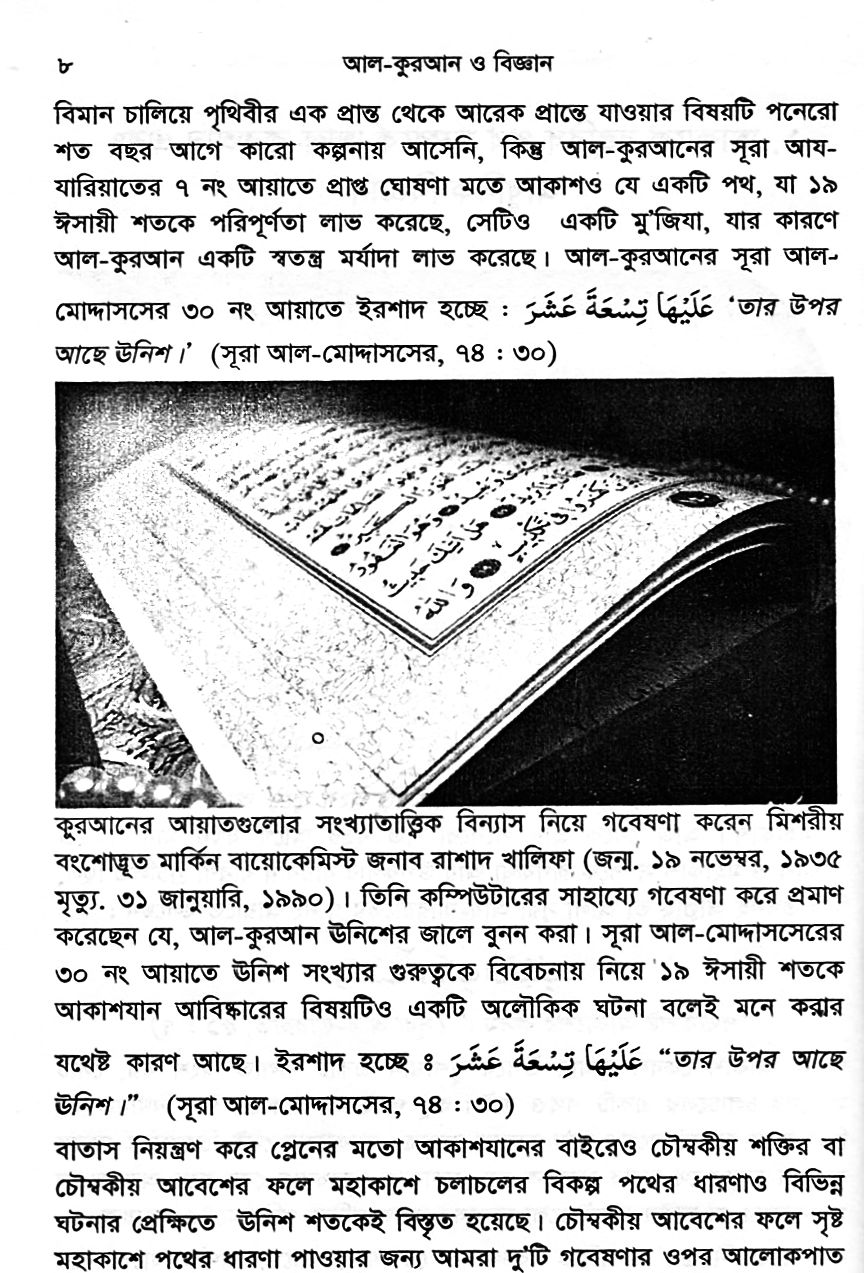 ৮ আল-কুরআন ও বিজ্ঞান
বিমান চালিয়ে পৃথিবীর এক প্রান্ত থেকে আরেক প্রান্তে যাওয়ার বিষয়টি পনেরো
শত বছর আগে কারো কল্পনায় আসেনি, কিন্তু আল-কুরআনের সূরা আয-
যারিয়াতের ৭ নং আয়াতে প্রাপ্ত ঘোষণা মতে আকাশও যে একটি পথ, যা ১৯
ঈসায়ী শতকে পরিপূর্ণতা লাভ করেছে, সেটিও একটি মু'জিযা, যার কারণে
আল-কুরআন একটি স্বতন্ত্র মর্যাদা লাভ করেছে। আল-কুরআনের সূরা আল-
মোদ্দাসসের ৩০ নং আয়াতে ইরশাদ হচ্ছে : عَلَيْهَا تِسْعَةَ عَشَرَ ‘তার উপর
আছে ঊনিশ।’ (সূরা আল-মোদ্দাসসের, ৭৪ : ৩০)
কুরআনের আয়াতগুলোর সংখ্যাতাত্ত্বিক বিন্যাস নিয়ে গবেষণা করেন মিশরীয়
বংশোদ্ভূত মার্কিন বায়োকেমিস্ট জনাব রাশাদ খালিফা (জন্ম. ১৯ নভেম্বর, ১৯৩৫
মৃত্যু. ৩১ জানুয়ারি, ১৯৯০)। তিনি কম্পিউটারের সাহায্যে গবেষণা করে প্রমাণ
করেছেন যে, আল-কুরআন ঊনিশের জালে বুনন করা। সূরা আল-মোদ্দাসসেরের
৩০ নং আয়াতে ঊনিশ সংখ্যার গুরুত্বকে বিবেচনায় নিয়ে ১৯ ঈসায়ী শতকে
আকাশযান আবিষ্কারের বিষয়টিও একটি অলৌকিক ঘটনা বলেই মনে করার
যথেষ্ট কারণ আছে। ইরশাদ হচ্ছে ঃ عَلَيْهَا تِسْعَةَ عَشَرَ “তার উপর আছে
ঊনিশ।” (সূরা আল-মোদ্দাসসের, ৭৪ : ৩০)
বাতাস নিয়ন্ত্রণ করে প্লেনের মতো আকাশযানের বাইরেও চৌম্বকীয় শক্তির বা
চৌম্বকীয় আবেশের ফলে মহাকাশে চলাচলের বিকল্প পথের ধারণাও বিভিন্ন
ঘটনার প্রেক্ষিতে ঊনিশ শতকেই বিস্তৃত হয়েছে। চৌম্বকীয় আবেশের ফলে সৃষ্ট
মহাকাশে পথের ধারণা পাওয়ার জন্য আমরা দু'টি গবেষণার ওপর আলোকপাত